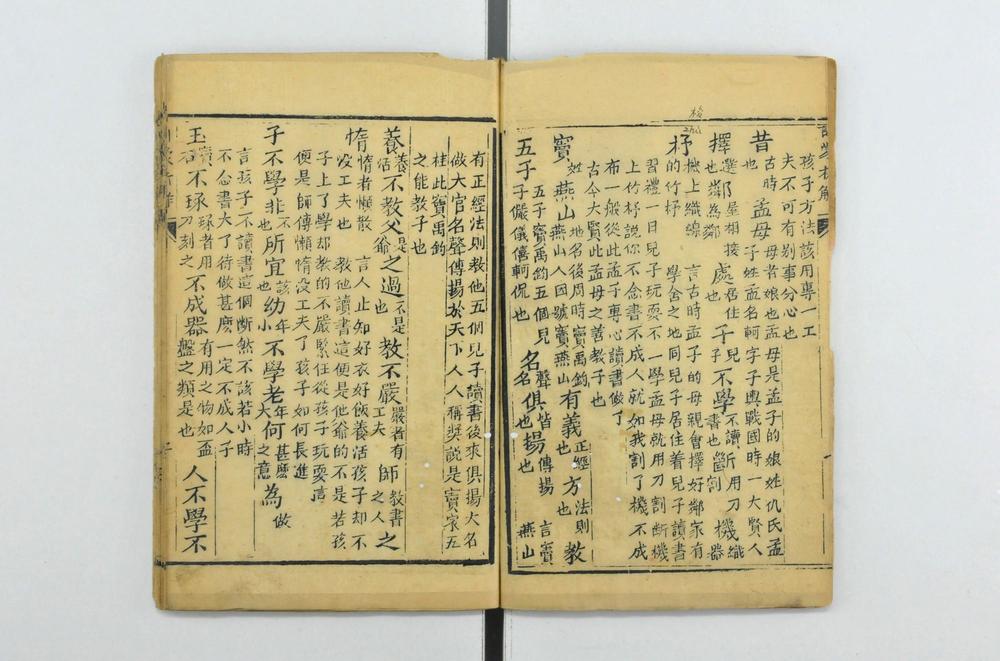 孩子方法該用專一工
夫不可有別事分心也
昔古時也孟母母者娘也孟母是孟子的娘姓仇氏孟子姓孟名軻字子輿戰國時一大賢人
擇選也鄰屋相接為鄰處居住也子兒子不學不讀書也斷用刀割機織機器
杼機上織線的竹杼言古時孟子的母親會擇好鄰家有學舍之地同兒子居住着兒子讀書
習禮一日兒子玩耍不學孟母就用刀割斷機
上竹杼說你不念書不成人就如我割了機不成
布一般從此孟子專心讀書做了
古今大賢此孟母之善教子也
竇姓燕山地名後周時竇禹鈞燕山人因號竇燕山有義正經也方法則也教
五子五子竇禹鈞五個兒子儼儀僖軻侃也名聲名俱皆也揚傳揚也言竇燕山
有正經法則教他五個兒子讀書後來俱揚大名
做大官名聲傳揚於天下人人稱獎說是竇家五
桂此竇禹鈞
之能教子也
養養活不教父是爺之過不是教不嚴嚴者有工夫師教書之人之
惰惰者懶散沒工夫也言人止知好衣好飯養活孩子却不教他讀書這便是他爺的不是若孩
子上了學却教的不嚴緊任從孩子玩耍這
便是師傅懶惰沒工夫了孩子如何長進
子不學非不是所宜該也幼年小不學老年大何甚麼之意為做
言孩子不讀書這個斷然不該若小時
不念書大了待做甚麼一定不成人子
玉寶石不琢琢者用刀刻之不成器有用之物如盂盤之類是也人不學不